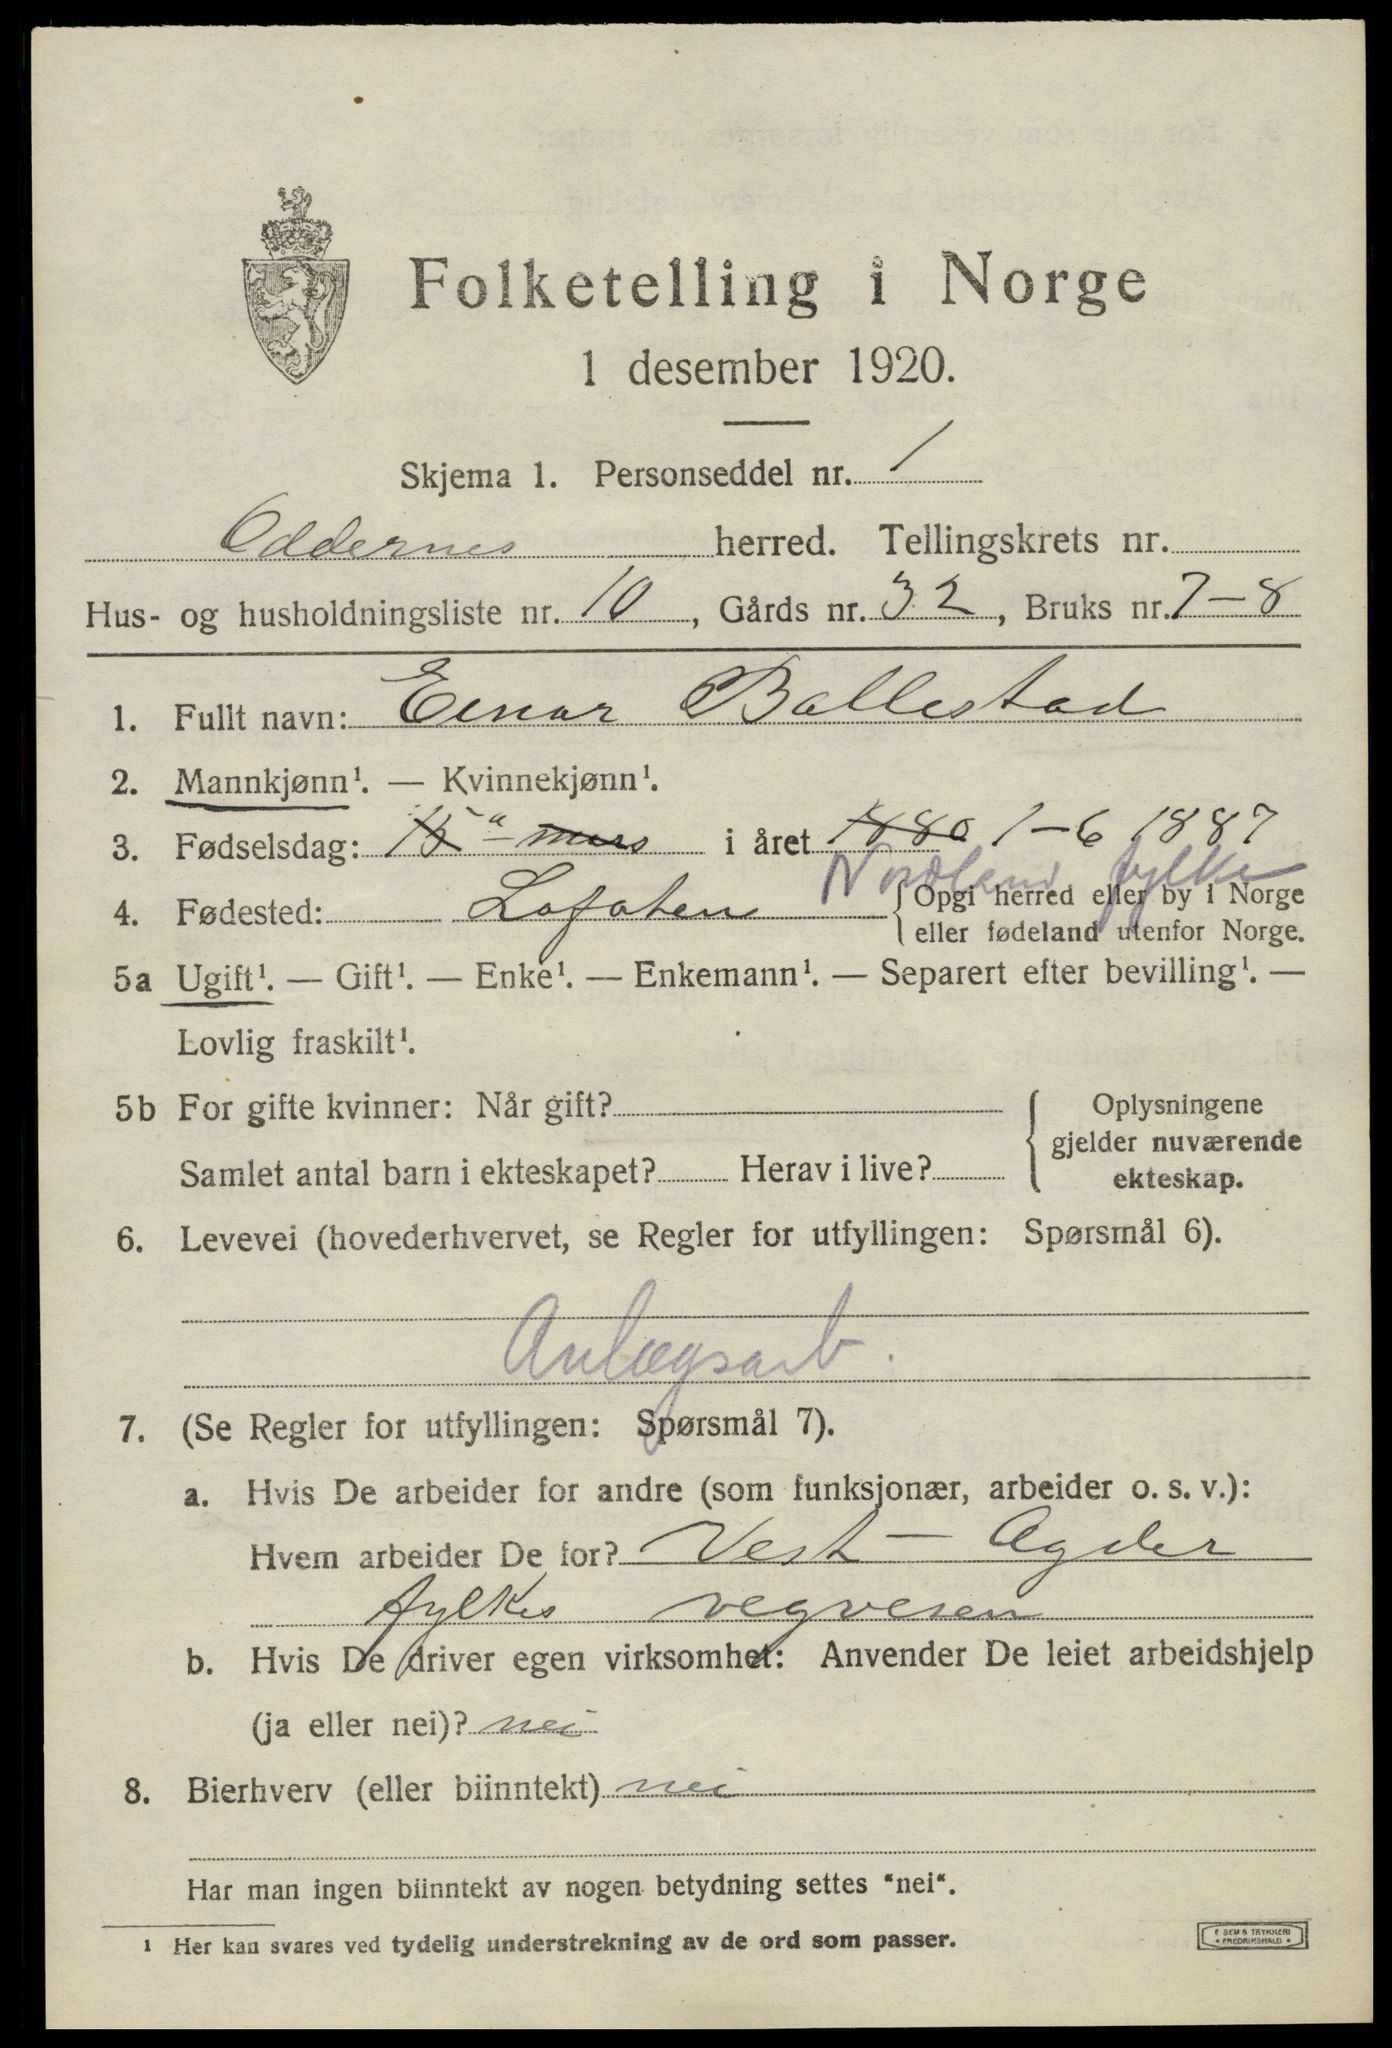 Folketelling i Norge
1 desember 1920.
Skjema 1. Personseddel nr. 1
Oddernes herred. Tellingskrets nr.
Hus- og husholdningsliste nr. 10, Gårds nr. 32, Bruks nr. 7-8
1. Fullt navn: Einar Ballestad
2. Mannkjønn¹. — Kvinnekjønn¹.
3. Fødselsdag: 15 mars i året 1880 1-6 1887
Nordland fylke
4. Fødested: Lofoten { Opgi herred eller by i Norge
eller fødeland utenfor Norge.
5a Ugift¹. — Gift¹. — Enke¹. — Enkemann¹. — Separert efter bevilling¹. —
Lovlig fraskilt¹.
5b For gifte kvinner: Når gift? { Oplysningene
gjelder nuværende
Samlet antal barn i ekteskapet? Herav i live? ekteskap.
6. Levevei (hovederhvervet, se Regler for utfyllingen: Spørsmål 6).
Anlægsarb.
7. (Se Regler for utfyllingen: Spørsmål 7).
a. Hvis De arbeider for andre (som funksjonær, arbeider o. s. v.):
Hvem arbeider De for? Vest-Agder
fylkes vegvesen
b. Hvis De driver egen virksomhet: Anvender De leiet arbeidshjelp
(ja eller nei)? nei
8. Bierhverv (eller biinntekt) nei
Har man ingen biinntekt av nogen betydning settes "nei".
¹ Her kan svares ved tydelig understrekning av de ord som passer.
SEM & TRYKKERI
FREDRIKSHALD